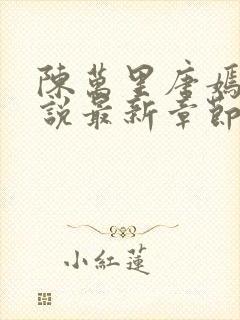 陳萬里唐嫣
說最新章節
小紅蓮